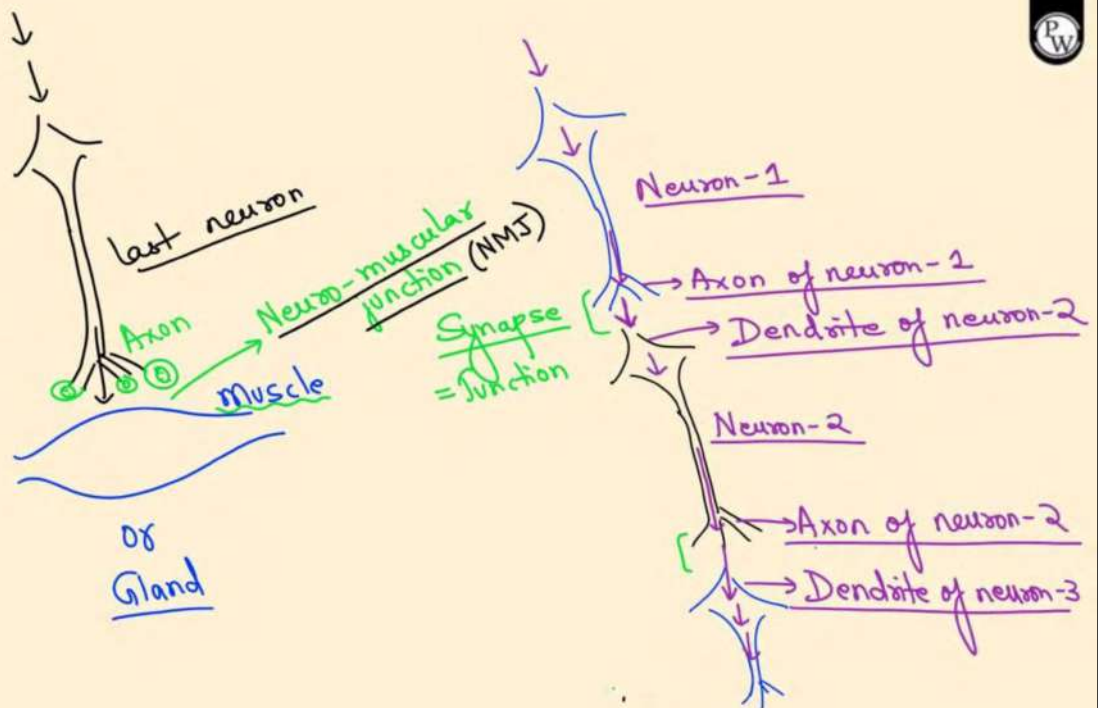 PW
last neuron
Axon
muscle
or
Gland
Neuro-muscular
junction (NMJ)
Synapse
= Junction
Neuron-1
Axon of neuron-1
Dendrite of neuron-2
Neuron-2
Axon of neuron-2
Dendrite of neuron-3